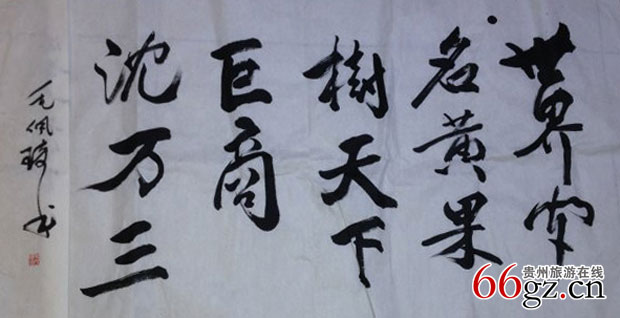 世界闻
名黄果
樹天下
巨商
沈万三
毛佩琦书
贵州旅游在线
66gz.cn